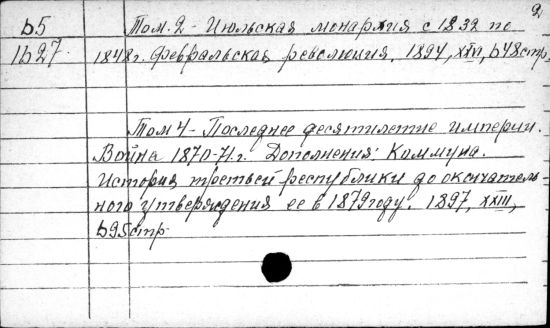 2
65 Том. 2 - Июльская монархия с 1832 по
1627. 1848г. Февральская революция. 1894, XXIV, 648 стр.
Том 4 - Последнее десятилетие империи.
Война 1870-71.г. Дополнения: Коммуна.
История третьей республики до окончатель-
ного утверждения ее в 1879 году. 1897, XXIII,
695 стр.